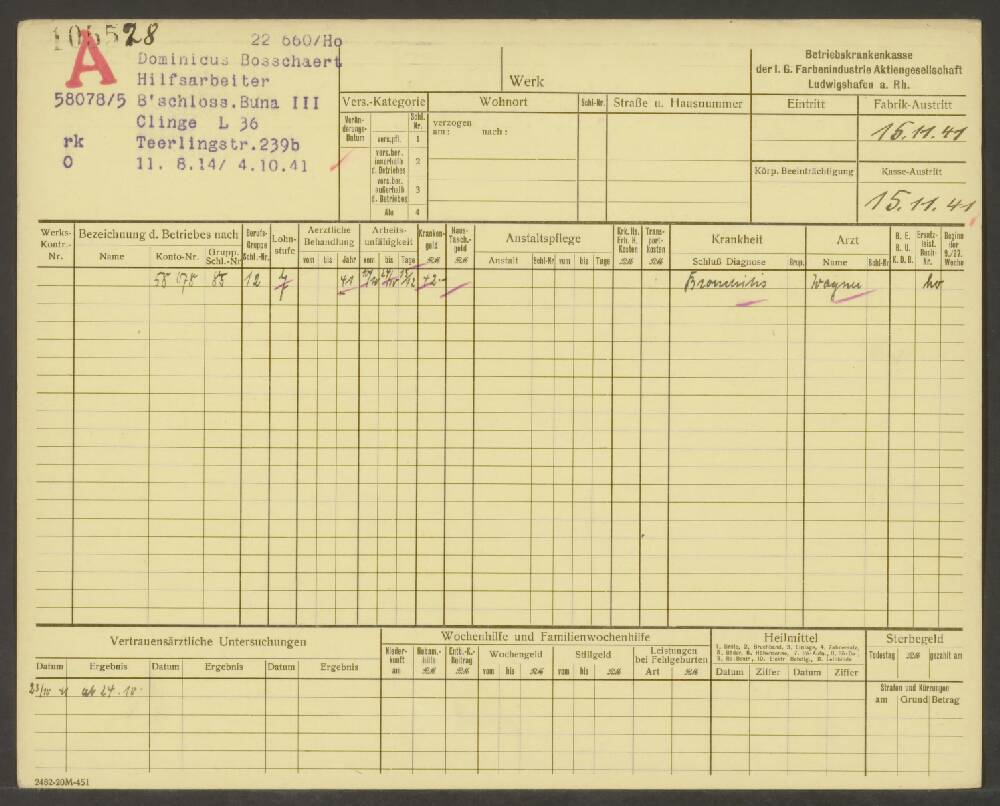 106528
22 660/Ho
A
Dominicus Bosschaert
Hilfsarbeiter
58078/5 B'schloss.Buna III
Clinge L 36
rk Teerlingstr.239b
O 11. 8.14/ 4.10.41
Werk
Betriebskrankenkasse
der I. G. Farbenindustrie Aktiengesellschaft
Ludwigshafen a. Rh.
Vers.-Kategorie Wohnort Schl-Nr. Straße u. Hausnummer Eintritt Fabrik-Austritt
Verän-
derungs-
Datum
Schl.
Nr.
vers.pfl. 1
vers.ber.
innerhalb
d. Betriebes 2
vers.ber.
außerhalb
d. Betriebes 3
Alo 4
verzogen
am: nach:
15.11.41
Körp. Beeinträchtigung Kasse-Austritt
15.11.41
Werks-
Kontr.-
Nr.
Bezeichnung d. Betriebes nach
Name Konto-Nr. Grupp.
Schl.-Nr
Berufs-
Gruppe
Schl.-Nr.
Lohn-
stufe
Aerztliche
Behandlung
vom bis Jahr
Arbeits-
unfähigkeit
vom bis Tage
Kranken-
geld
RM
Haus-
Tasch.-
geld
RM
Anstaltspflege
Anstalt Schl-Nr vom bis Tage
Krk. Hs.
Erh. H.
Kosten
RM
Trans-
port-
kosten
RM
Krankheit
Schluß Diagnose Grup.
Arzt
Name Schl-Nr
B. E.
B. U.
K. D. B.
Ersatz-
leist.
Buch-
Nr.
Beginn
der
9./27.
Woche
58 078 85 12 41 Bronchitis Wagner ho
Vertrauensärztliche Untersuchungen
Datum Ergebnis Datum Ergebnis Datum Ergebnis
Wochenhilfe und Familienwochenhilfe
Nieder-
kunft
am
Hebam.-
hilfe
RM
Entb.-K.-
Beitrag
RM
Wochengeld
vom bis RM
Stillgeld
vom bis RM
Leistungen
bei Fehlgeburten
Art RM
Heilmittel
Datum Ziffer Datum Ziffer
Sterbegeld
Todestag RM gezahlt am
23/10 ab 24.10.
Strafen und Kürzungen
am Grund Betrag
2482-20M-451